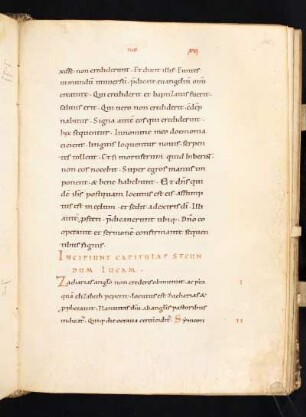 xisse non crediderunt. Et dixit illis. Euntes
in mundum universum. predicate evangelium omni
creature. Qui crediderit et baptizatus fuerit
salvus erit. Qui vero non crediderit. condemp
nabitur. Signa autem eos qui crediderint
hec sequentur. In nomine meo demonia
eicient. linguis loquentur novis. serpen
tes tollent. Et si mortiferum quid biberint
non eos nocebit. Super egros manus im
ponent & bene habebunt. Et dns quid
dē ihs postquam locutus est eis. Assumptus
est in celum et sedet a dextris dī. Illi
autē pfecti. predicaverunt ubiq. Dño co
operante et sermonē confirmante sequen
tibus signis.
INCIPIUNT CAPITULA SECUN
DUM LUCAM.
Zacharias anglo non credens obmutuit. ac postea
quā elisabeth peperit. locutus est zacharias &
pphetavit. Nativitas dñi ab anglis pastoribus
indicat. Quiq; die octava circūcidit. Symeon
I
II